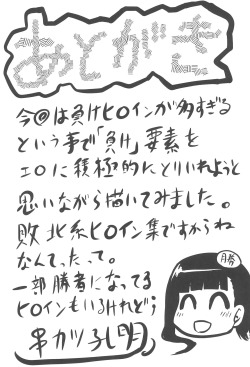 あとがき
今回は負けヒロインが多すぎる
という事で「負け」要素を
エロに積極的にとりいれようと
思いながら描いてみました。
敗北系ヒロイン集ですからね
なんてったって。
一部勝者になってる
ヒロインもいるけれど;
勝
串カツ子し明